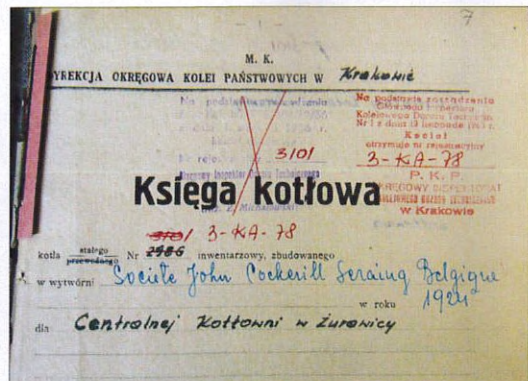 7
M. K.
DYREKCJA OKRĘGOWA KOLEI PAŃSTWOWYCH W Krakowie
Na podstawie zarządzenia
Głównego Inspektora
Kolejowego Dozoru Technicznego
Nr 1 z dnia 19 listopada
Kocioł
otrzymuje nr rejestracyjny
3-KA-78
P. K. P.
OKRĘGOWY INSPEKTORAT
KOLEJOWEGO DOZORU TECHNICZNEGO
w Krakowie
Na podstawie
Nr 3101
Księga kotłowa
3101 3-KA-78
kotła stałego przewoźnego Nr 2986 inwentarzowy, zbudowanego
w wytwórni Societe John Cockerill Seraing Belgique
w roku 1924
dla Centralnej Kotłowni w Żurawicy